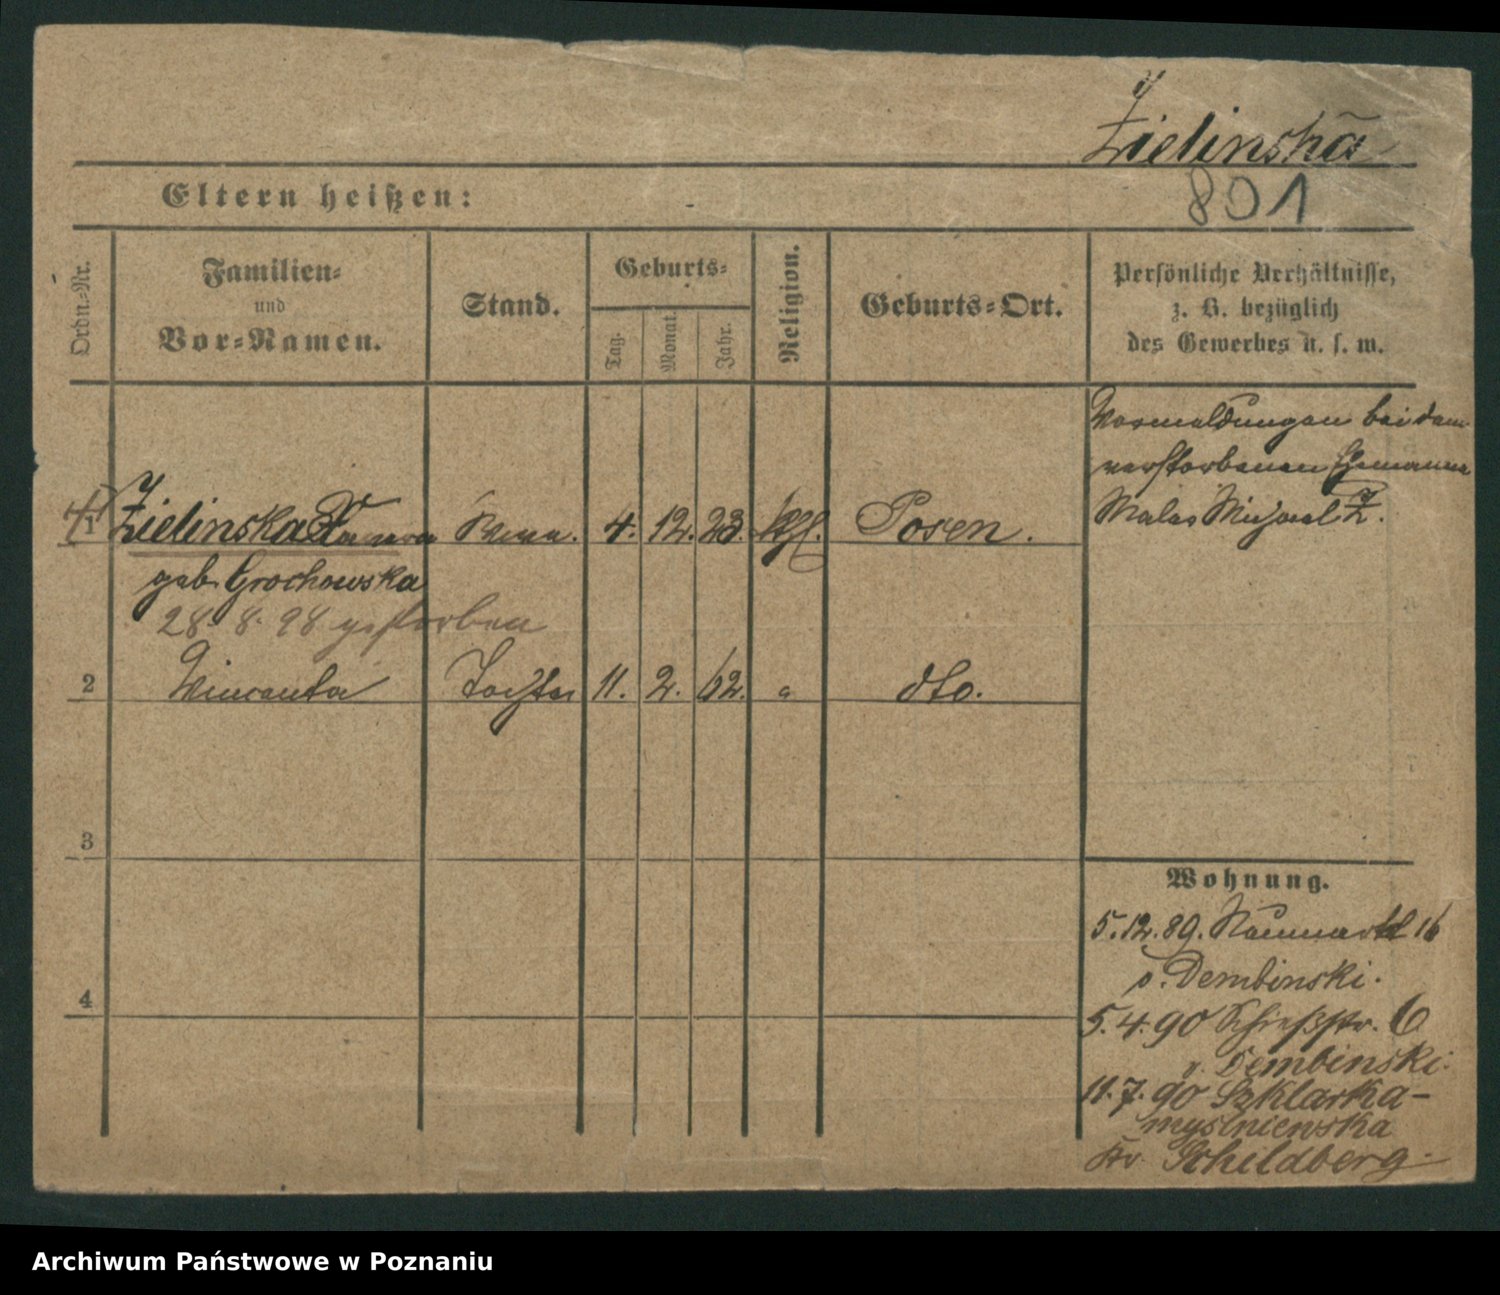 Zielinska
801
Eltern heißen:
Ordn.-Nr.
Familien-
und
Vor-Namen.
Stand.
Geburts-
Tag.
Monat.
Jahr.
Religion.
Geburts-Ort.
Persönliche Verhältnisse,
z. B. bezüglich
des Gewerbes u. s. w.
Vormeldungen bei dem
verstorbenen Ehemanne
Maler Michael Z.
1 Zielinska 4. 12. 23. kath. Posen.
geb. Grochowska
28. 8. 98 gestorben
2 Vincenta Tochter 11. 2. 62. dto.
3
4
Wohnung.
5.12.89. Neumarkt 16
b. Dembinski.
5.4.90 Schießstr. 6
v. Dembinski.
11.7.90 Szklarka-
myslniewska
Kr. Schildberg.
Archiwum Państwowe w Poznaniu